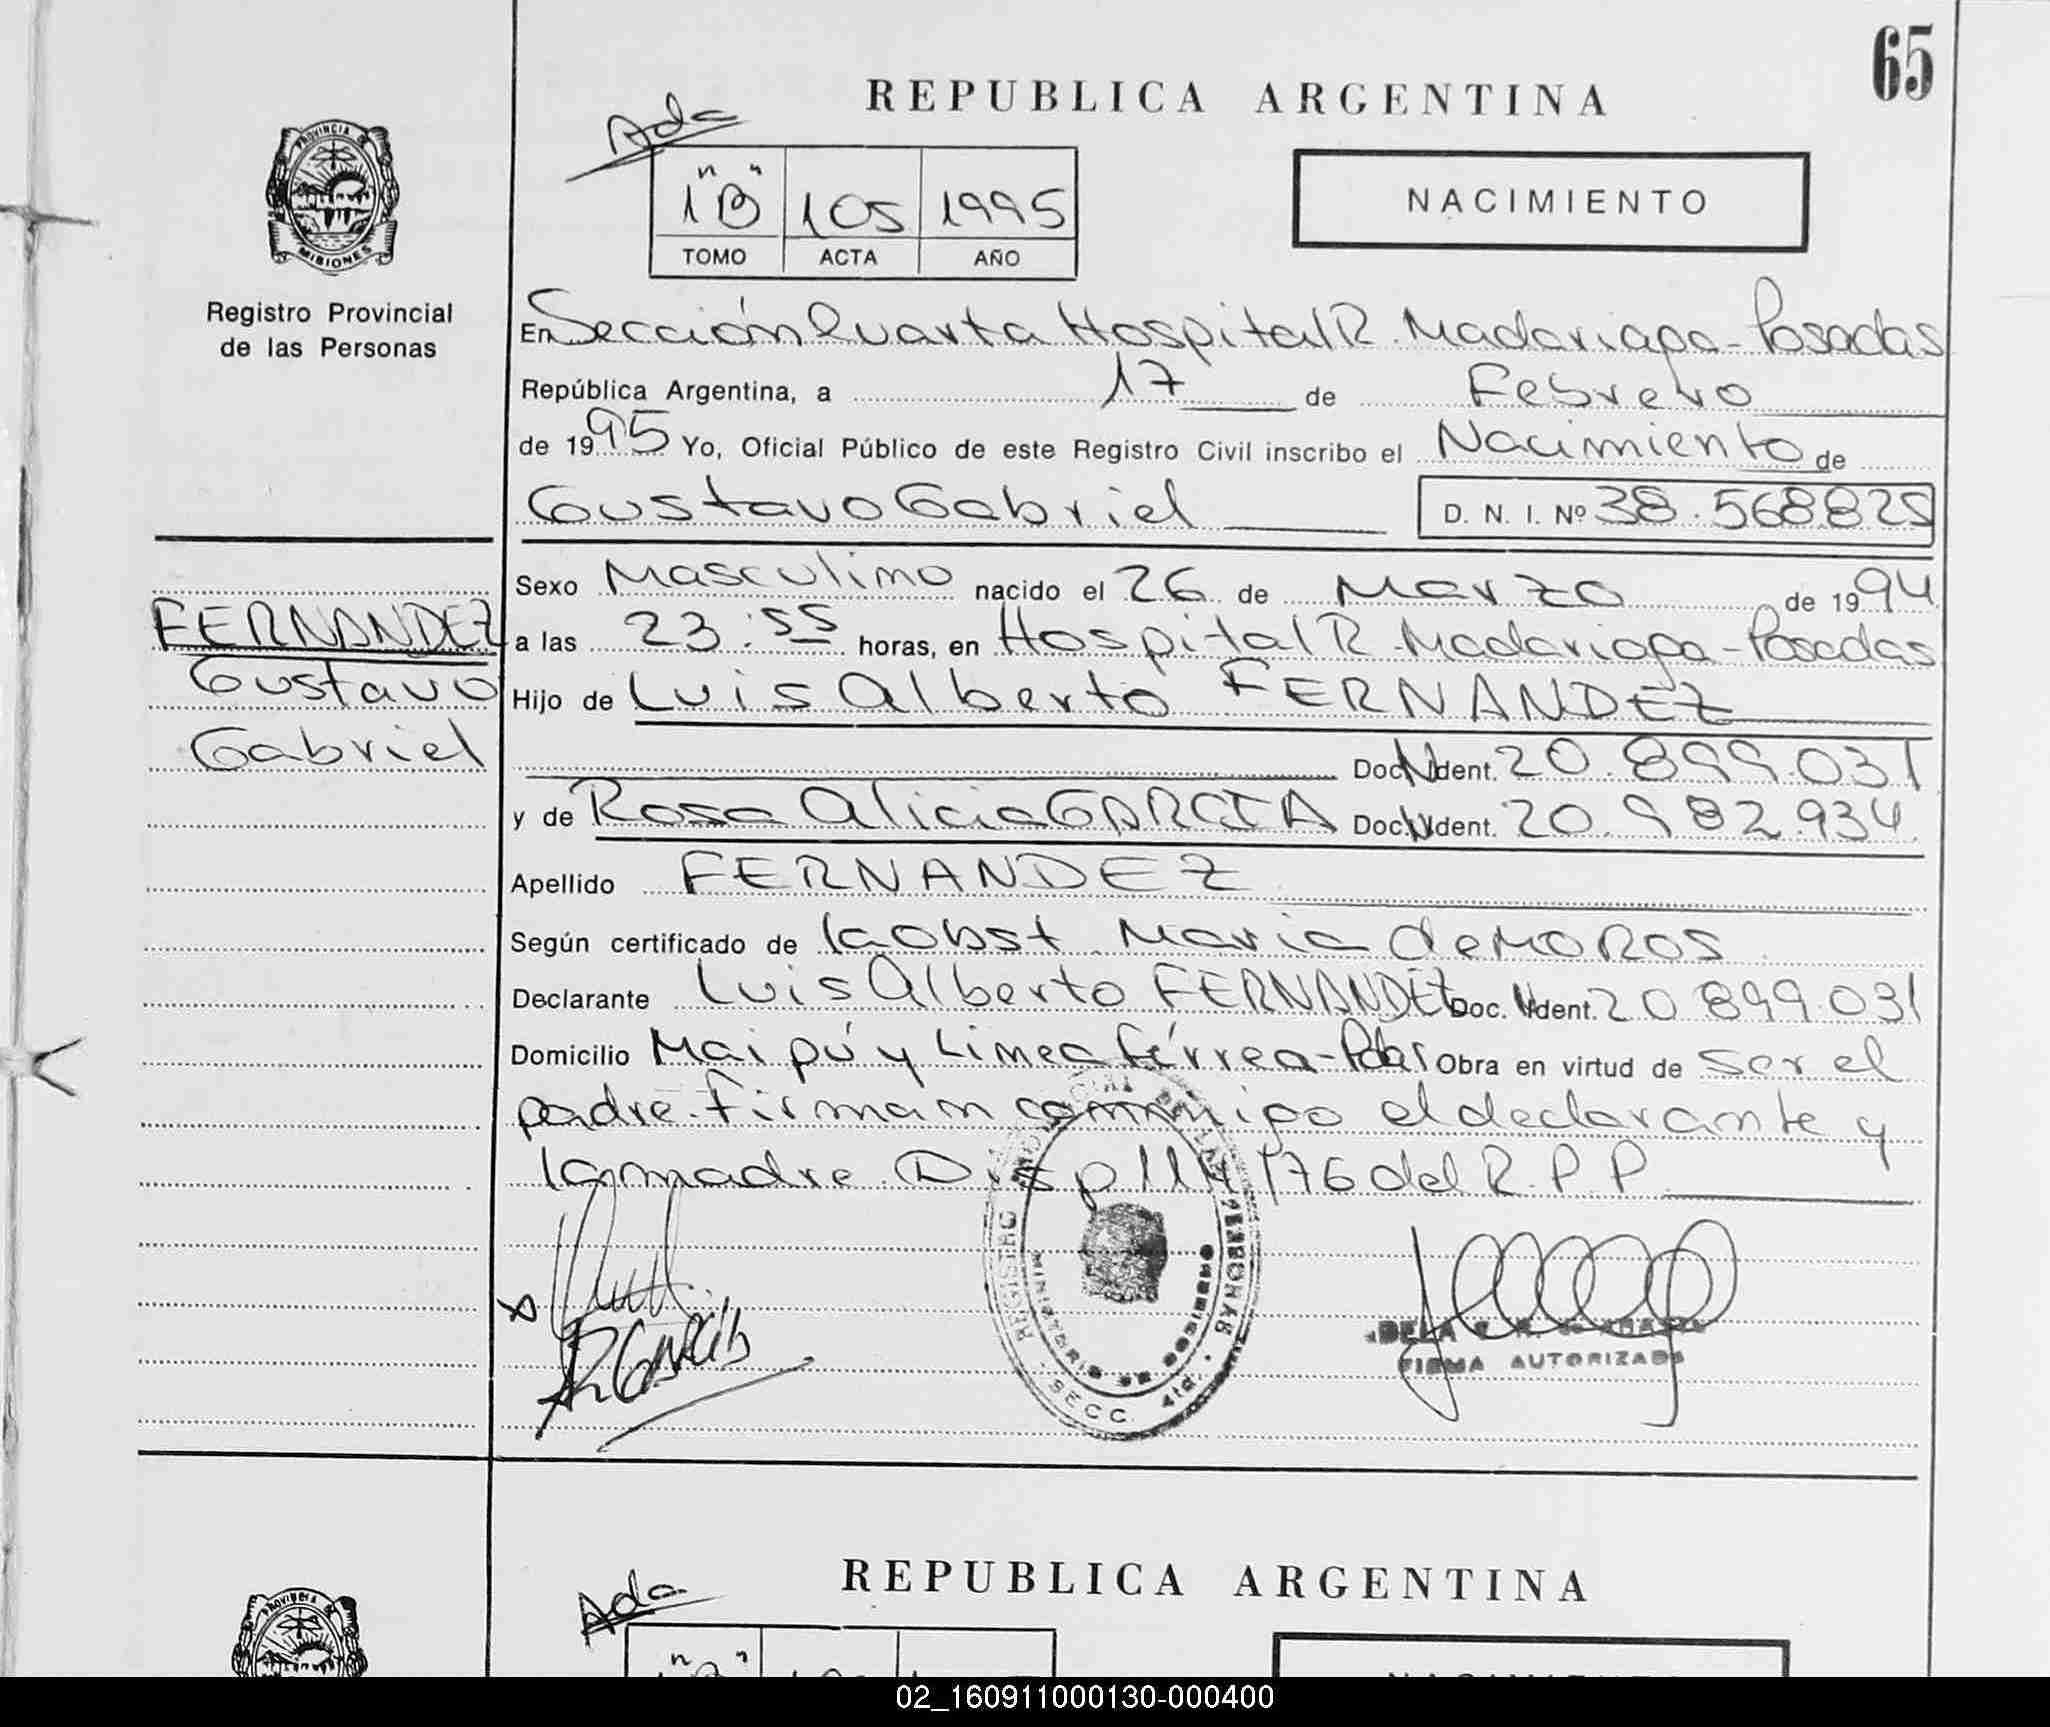 65
REPUBLICA ARGENTINA
Ada
1 "B" 105 1995
TOMO ACTA AÑO
NACIMIENTO
PROVINCIA DE
MISIONES
Registro Provincial
de las Personas
En Sección Cuarta Hospital R. Madariaga - Posadas
República Argentina, a 17 de Febrero
de 1995 Yo, Oficial Público de este Registro Civil inscribo el Nacimiento de
Gustavo Gabriel D. N. I. Nº 38.568825
Sexo Masculino nacido el 26 de Marzo de 1994
FERNANDEZ
Gustavo
Gabriel
a las 23:55 horas, en Hospital R. Madariaga - Posadas
Hijo de Luis Alberto FERNANDEZ
Doc. Ident. 20.899.031
y de Rosa Alicia GARCIA Doc. Ident. 20.982.934
Apellido FERNANDEZ
Según certificado de la obst. Maria de MOROS
Declarante Luis Alberto FERNANDEZ Doc. Ident. 20.899.031
Domicilio Maipú y Linea Férrea - Pdas Obra en virtud de ser el
padre. Firman conmigo el declarante y
la madre. Disp 114/76 del R.P.P.
REGISTRO DE LAS PERSONAS
MINISTERIO DE GOBIERNO
SECC. 4ta.
R Garcia
FIRMA AUTORIZADA
REPUBLICA ARGENTINA
Ada
02_160911000130-000400